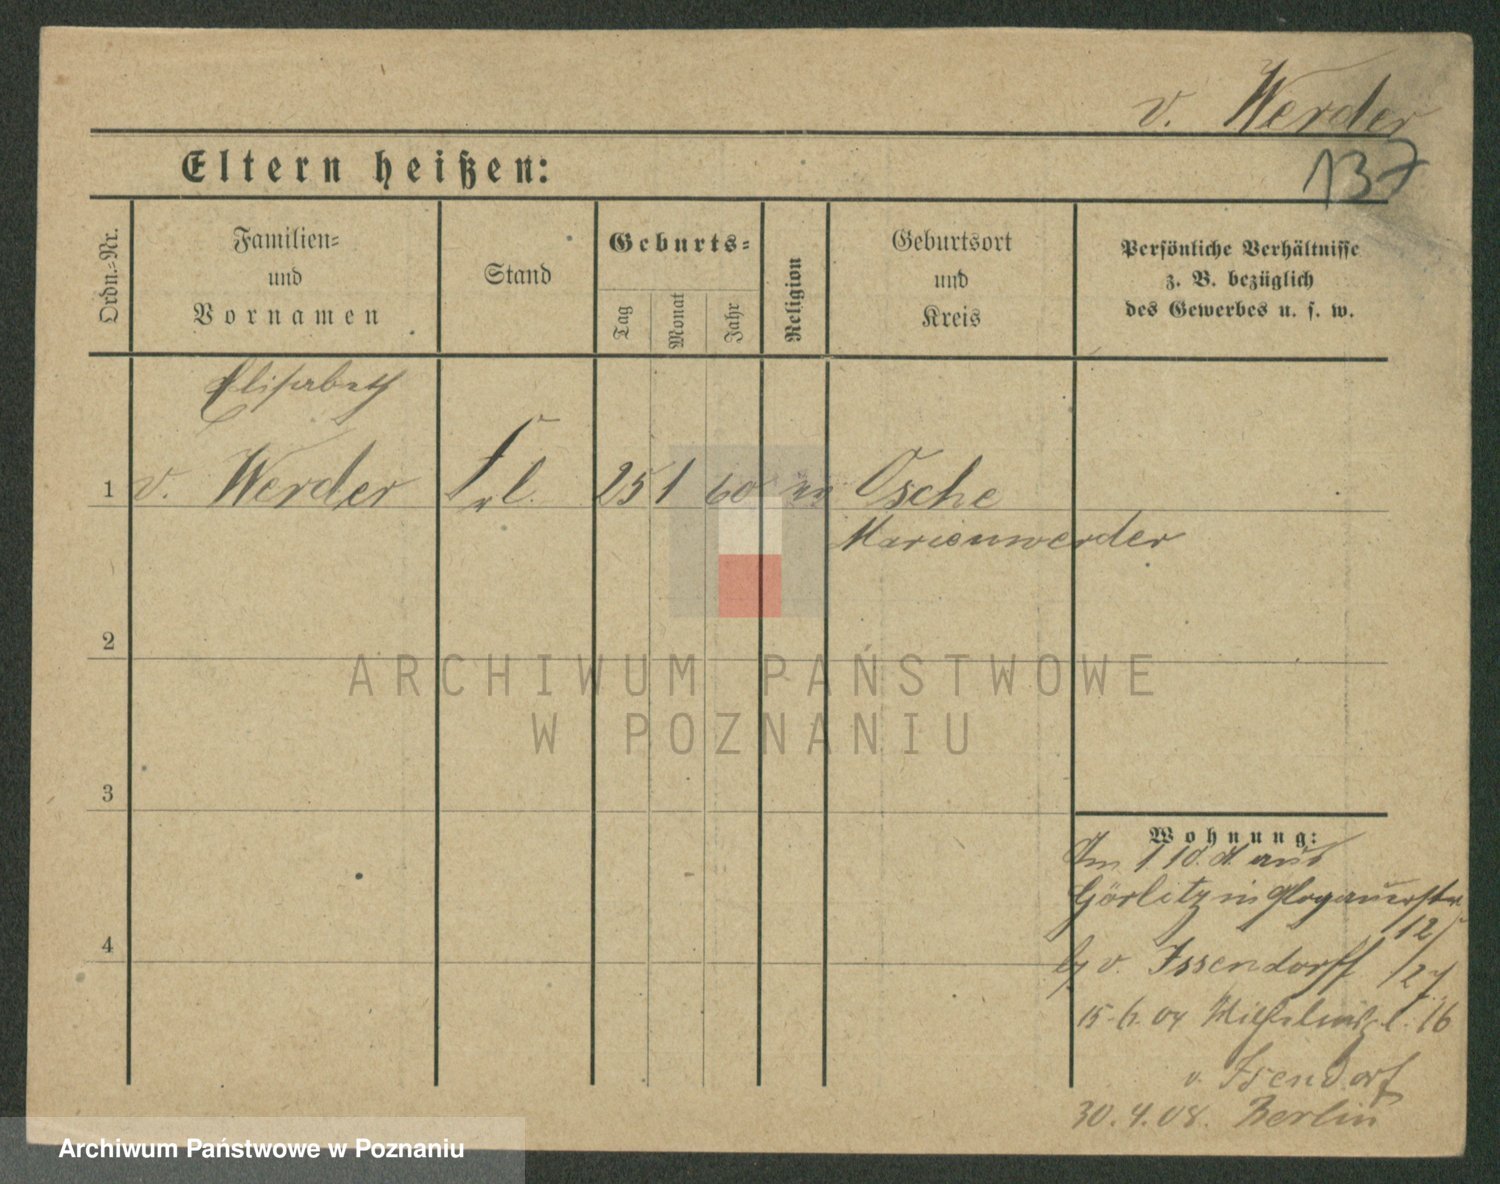 v. Werder
137
Eltern heißen:
Ordn.-Nr.
Familien-
und
Vornamen
Stand
Geburts-
Tag
Monat
Jahr
Religion
Geburtsort
und
Kreis
Persönliche Verhältnisse
z. B. bezüglich
des Gewerbes u. s. w.
Elisabeth
1 v. Werder Frl. 25 1 60 Osche
Marienwerder
2
3
4
ARCHIWUM PAŃSTWOWE
W POZNANIU
Wohnung:
aus
Görlitz in Glogauerstr
12/
v. Issendorff
15.6.04 16
v. Isendorf
30.4.08. Berlin
Archiwum Państwowe w Poznaniu